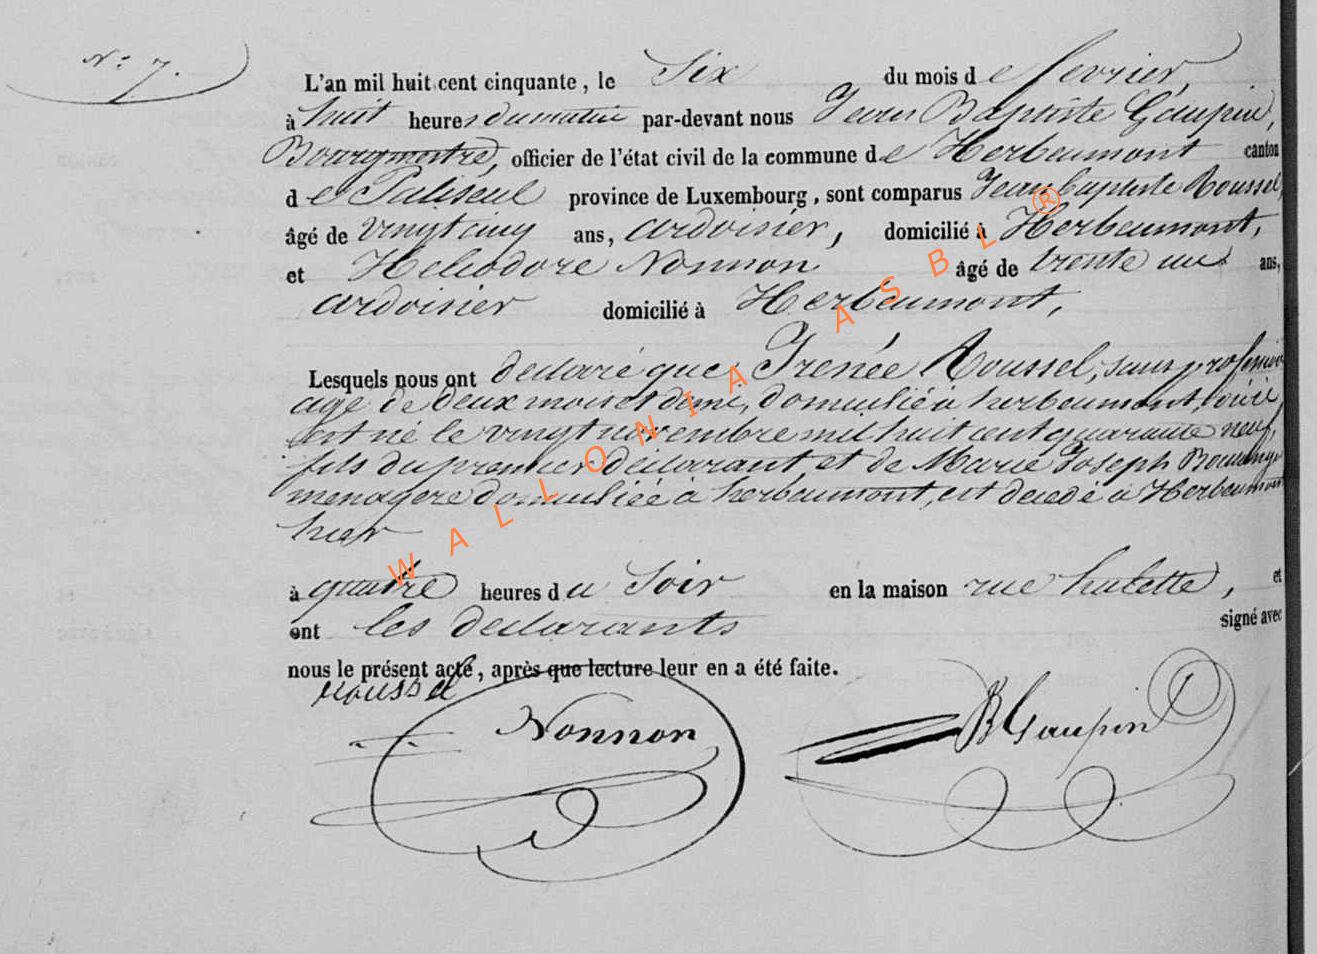 N° 7.
L'an mil huit cent cinquante, le Six du mois de fevrier,
à huit heures du matin par-devant nous Jean Baptiste Gaupin,
Bourgmestre, officier de l'état civil de la commune de Herbeumont canton
de Paliseul province de Luxembourg, sont comparus Jean baptiste Roussel,
âgé de vingt cinq ans, ardoisier, domicilié à Herbeumont,
et Heliodore Nonnon âgé de trente un ans,
ardoisier domicilié à Herbeumont,
Lesquels nous ont declaré que Irenée Roussel, sans profession
agé de deux mois et demi, domicilié à herbeumont,
est né le vingt novembre mil huit cent quarante neuf,
fils du premier déclarant et de Marie Joseph
menagere domiciliée à herbeumont, est decedé à Herbeumont
hier
à quatre heures du Soir en la maison rue hulette, et
ont les declarants signé avec
nous le présent acte, après que lecture leur en a été faite.
roussel
Nonnon
JB Gaupin
WALLONIA ASBL ®